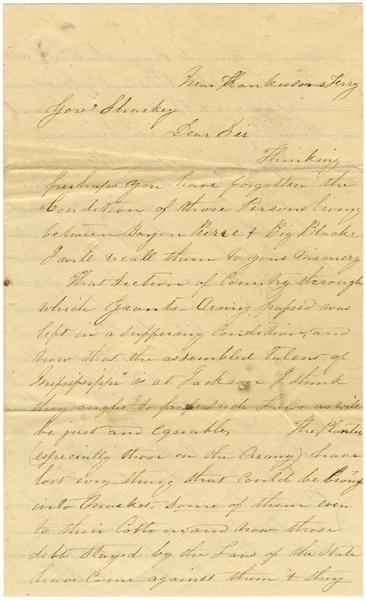 Near Hankinsons Ferry
Gov.r Sharkey
Dear Sir
Thinking
perhaps you have forgotten the
Condition of those Persons living
between Bayou Pierre & Big Black
I will recall them to your memory
That Section of Country through
which Grants Army passed was
left in a suffering Condition, and
now that the assembled Talent of
Mississippi is at Jackson I think
they ought to pass such Laws as will
be just and equable, The Planters
(especially those in the Army) have
lost every thing that could be brought
into market, some of them even
to their Cotton, and now those
debts stayed by the Laws of the State
have come against them & they